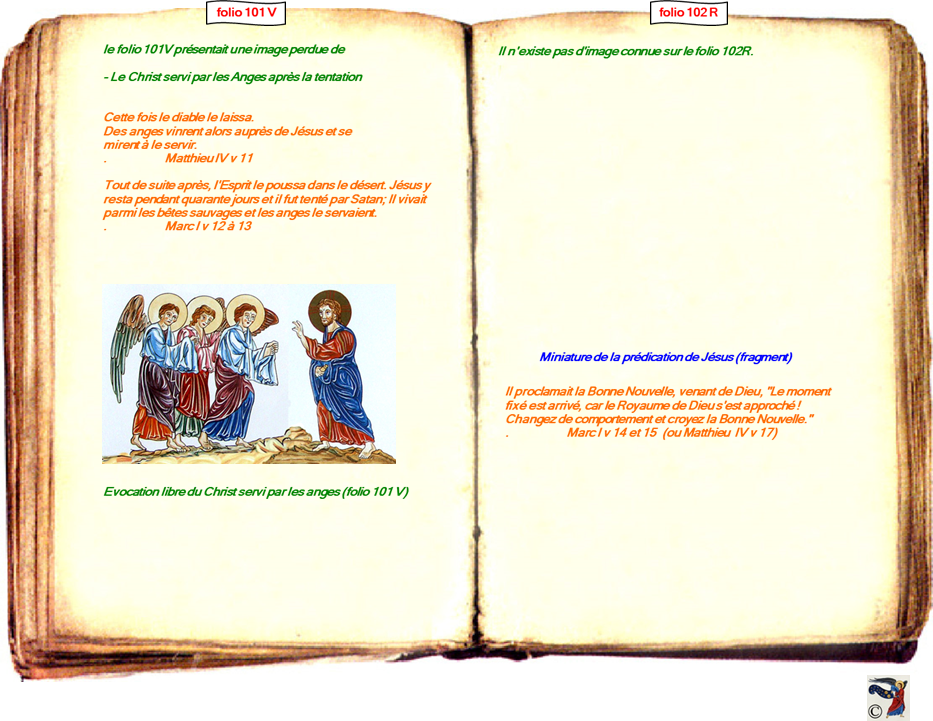 folio 101 V
le folio 101V présentait une image perdue de
- Le Christ servi par les Anges après la tentation
Cette fois le diable le laissa.
Des anges vinrent alors auprès de Jésus et se
mirent à le servir.
. Matthieu IV v 11
Tout de suite après, l'Esprit le poussa dans le désert. Jésus y
resta pendant quarante jours et il fut tenté par Satan; Il vivait
parmi les bêtes sauvages et les anges le servaient.
. Marc I v 12 à 13
Evocation libre du Christ servi par les anges (folio 101 V)
folio 102 R
Il n'existe pas d'image connue sur le folio 102R.
Miniature de la prédication de Jésus (fragment)
Il proclamait la Bonne Nouvelle, venant de Dieu, "Le moment
fixé est arrivé, car le Royaume de Dieu s'est approché !
Changez de comportement et croyez la Bonne Nouvelle."
. Marc I v 14 et 15 (ou Matthieu IV v 17)
©